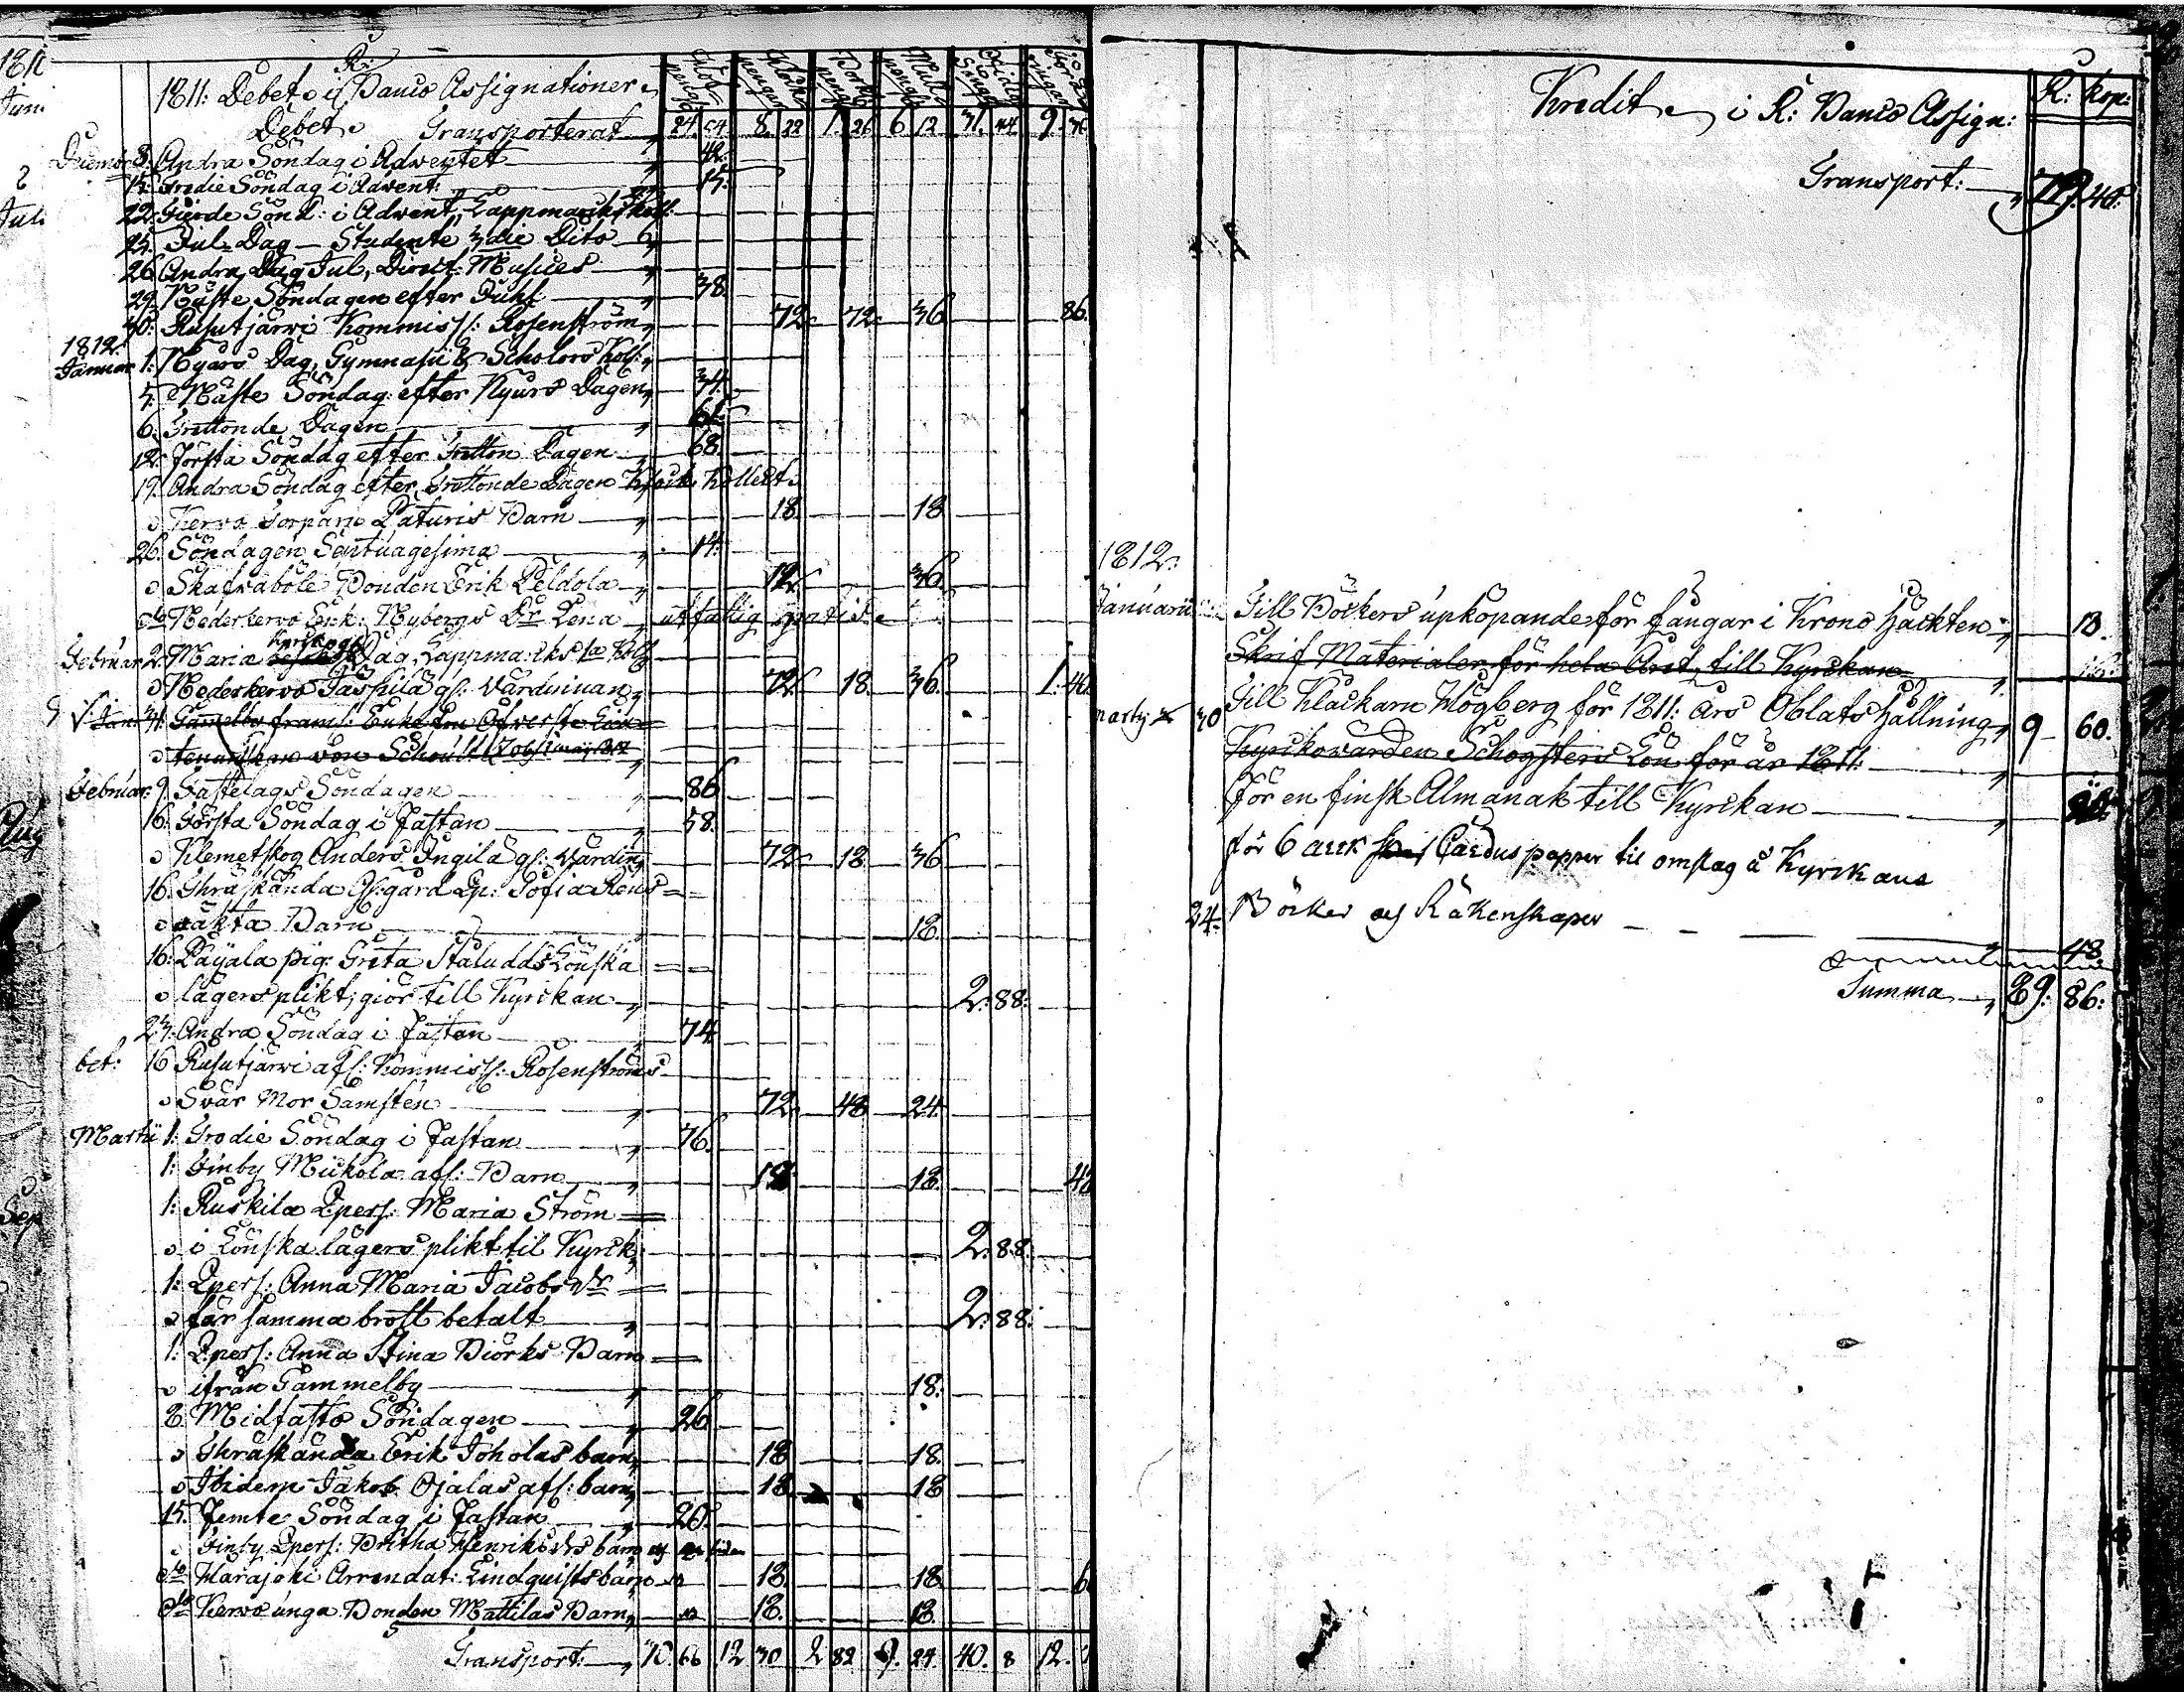 1811: Debet i R: Banco Assignationer
Debet Transporterat 24. 54 8. 22 1. 26 6 12 31. 44 9.
8. Andra Söndag i Adventet 42.
15. Tredie Söndag i Advent. 15.
22. Fierde Sönd: i Advent, Lappmarks Koll:
25. Jul Dag — Studente 3die Dito
26. Andra Dag Jul, Direct: Musices
29. Näste Söndagen efter Juhl 38.
30. Rusutjärvi Kommiss: Rosenström 72. 72. 36 86.
1812.
Januar 1. Nyårs Dag, Gymnasii & Scholars Kol:
5. Näste Söndag efter Nyårs Dagen 34.
6. Trettonde Dagen
12. Första Söndag efter Tretton Dagen 68.
19. Andra Söndag efter Trettonde Dagen Kollect.
Kervo Torpare Paturis Barn 18. 18
26. Söndagen Septuagesima 14.
Skafvaböle Bonden Erik Peldola 72. 36.
Nederkervo Enk: Nybergs Dr Lena utfattig gratis
Februar 2. Maria Kyrkog. Dag, Lappmarks Koll
Nederkervo Jäspilä gl: Värdinnan 72. 18. 36. 1. 40
31. Gamelby framl: Enke Fru Öfverste Lieu=
tenantskan von Schoultz
Februar. 9. Fastelags Söndagen 86
16. Första Söndag i Fastan 58.
Klemetskog Anders Ingilä gl: Värdin 72. 18. 36
16. Thräskända Gl:gård Lp: Sofia Rens
oäkta Barn 18.
16. Payala pig: Greta Ståludds Lönska
lägers plikt, giör till Kyrkan 2. 88.
23. Andra Söndag i Fastan 74
bet: 16 Rusutjärvi afl: Kommiss: Rosenströms
Svär Mor Samsten 72. 48 24.
Martii 1. Tredie Söndag i Fastan 76.
1. Finby Mickola afl: Barn 18. 18. 48
1. Ruskila Qpers: Maria Ström
i Lönska lägers plikt til Kyrk. 2. 88.
1. Qpers: Anna Maria Jacobs Dr
för samma brott betalt 2. 88.
1. Qpers: Anna Stina Biörks Barn
ifrån Gammelby 18.
8. Midfasto Söndagen 26
Thräskända Erik Joholas barn 18 18.
Ibidem Jakob Ojalas afl: barn 18 18
15. Femte Söndag i Fastan 20.
Finby Qpers: Britha Henriks Drs barn
Harajoki Arrendat: Lindquists barn 18. 18. 6
Kervo unga Bonden Mattilas Barn 18. 18.
Transport: 30. 66 12 30 2 82 9. 24 40. 8 12.
Kredit i R: Banco Assign: R: kop:
Transport: 79. 40.
1812.
Januarii Till Böckers upköpande för fångar i Krono Häckten 18.
Skrif Materialer för hela Året, till Kyrkan
30 Till Klåckarn Högberg för 1811: Års Oblats Hållning 9 60.
Kyrkovärden Schogsters Lön för år 1811:
För en finsk Almanak till Kyrkan
för 6 ark Cardus papper til omslag å Kyrkans
24. Böcker och Räkenskaper 48.
Summa 89. 86.